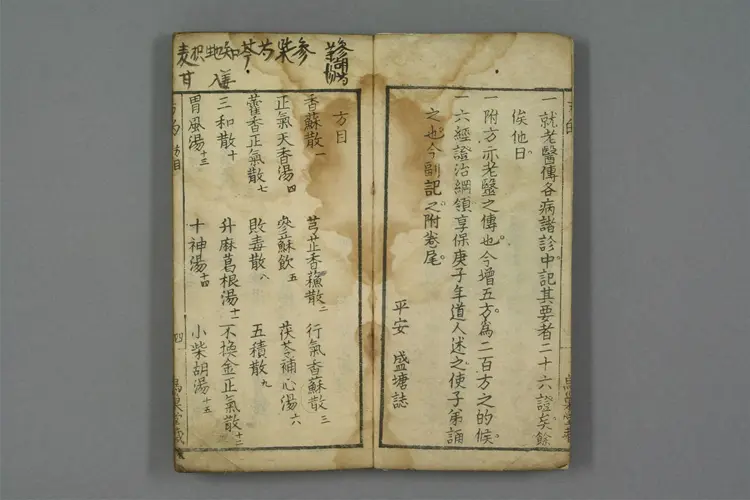 一就老醫傳各病諸診中記其要者二十六證矣餘
俟他日
一附方亦老醫之傳也今增五方為二百方之的候
一六經證治綱領享保庚子年道人述之使子弟誦
之也今副記之附卷尾
平安 盛塘誌
方目
香蘇散一 芎芷香蘓散二 行氣香蘇散三
正氣天香湯四 參蘇飲五 茯苓補心湯六
藿香正氣散七 敗毒散八 五積散九
三和散十 升麻葛根湯十一 不換金正氣散十二
胃風湯十三 十神湯十四 小柴胡湯十五
參柴芍芩知地枳麦
甘
方目
四